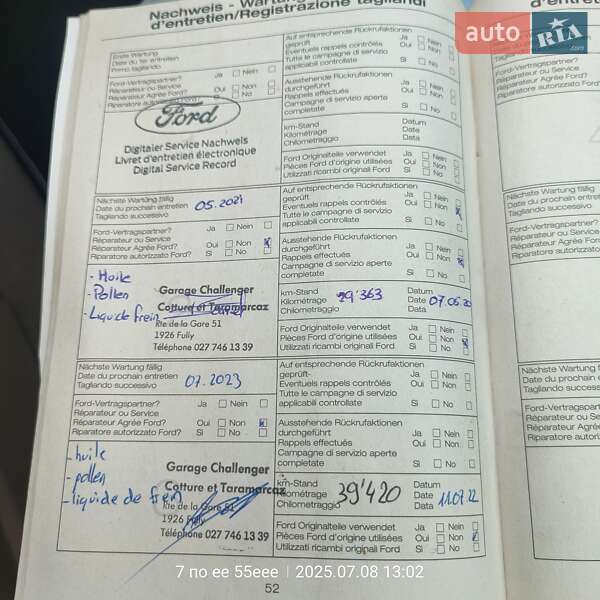 Nachweis - Wartung
d'entretien/Registrazione tagliandi
auto RIA.com
Erste Wartung
Date du 1er entretien
Primo tagliando
Ford-Vertragspartner? Ja Nein
Réparateur ou Service
Réparateur Agréé Ford? Oui Non
Riparatore autorizzato Ford? Si No
Ford
Digitaler Service Nachweis
Livret d'entretien électronique
Digital Service Record
Auf entsprechende Rückrufaktionen
geprüft Ja Nein
Eventuels rappels contrôlés Oui Non
Tutte le campagne di servizio
applicabili controllate Si No
Ausstehende Rückrufaktionen
durchgeführt Ja Nein
Rappels effectués Oui Non
Campagne di servizio aperte
completate Si No
km-Stand Datum
Kilométrage Date
Chilometraggio Data
Ford Originalteile verwendet Ja Nein
Pièces Ford d'origine utilisées Oui Non
Utilizzati ricambi originali Ford Si No
Nächste Wartung fällig
Date du prochain entretien 05.2021
Tagliando successivo
Ford-Vertragspartner? Ja Nein
Réparateur ou Service
Réparateur Agréé Ford? Oui Non x
Riparatore autorizzato Ford? Si No
- Huile
- Pollen
- Liquide frein
Garage Challenger
Cotture et Taramarcaz
Rte de la Gare 51
1926 Fully
Téléphone 027 746 13 39
Auf entsprechende Rückrufaktionen
geprüft Ja Nein
Eventuels rappels contrôlés Oui Non x
Tutte le campagne di servizio
applicabili controllate Si No
Ausstehende Rückrufaktionen
durchgeführt Ja Nein
Rappels effectués Oui Non x
Campagne di servizio aperte
completate Si No
km-Stand Datum
Kilométrage 29'363 Date 07.05.20
Chilometraggio Data
Ford Originalteile verwendet Ja Nein
Pièces Ford d'origine utilisées Oui Non x
Utilizzati ricambi originali Ford Si No
Nächste Wartung fällig
Date du prochain entretien 07.2023
Tagliando successivo
Ford-Vertragspartner? Ja Nein
Réparateur ou Service
Réparateur Agréé Ford? Oui Non x
Riparatore autorizzato Ford? Si No
- huile
- pollen
- liquide de frein
Garage Challenger
Cotture et Taramarcaz
Rte de la Gare 51
1926 Fully
Téléphone 027 746 13 39
Auf entsprechende Rückrufaktionen
geprüft Ja Nein
Eventuels rappels contrôlés Oui Non
Tutte le campagne di servizio
applicabili controllate Si No
Ausstehende Rückrufaktionen
durchgeführt Ja Nein
Rappels effectués Oui Non
Campagne di servizio aperte
completate Si No
km-Stand Datum
Kilométrage 39'420 Date 11.07.22
Chilometraggio Data
Ford Originalteile verwendet Ja Nein
Pièces Ford d'origine utilisées Oui Non x
Utilizzati ricambi originali Ford Si No
52
7 no ee 55eee | 2025.07.08 13:02
d'entretie
Nächste Wartung
Date du prochain
Tagliando succes
Ford-Vertragspar
Réparateur ou S
Réparateur Agré
Riparatore autor
Nächste Wart
Date du proc
Tagliando su
Ford-Vertrag
Réparateur
Réparateur
Riparatore